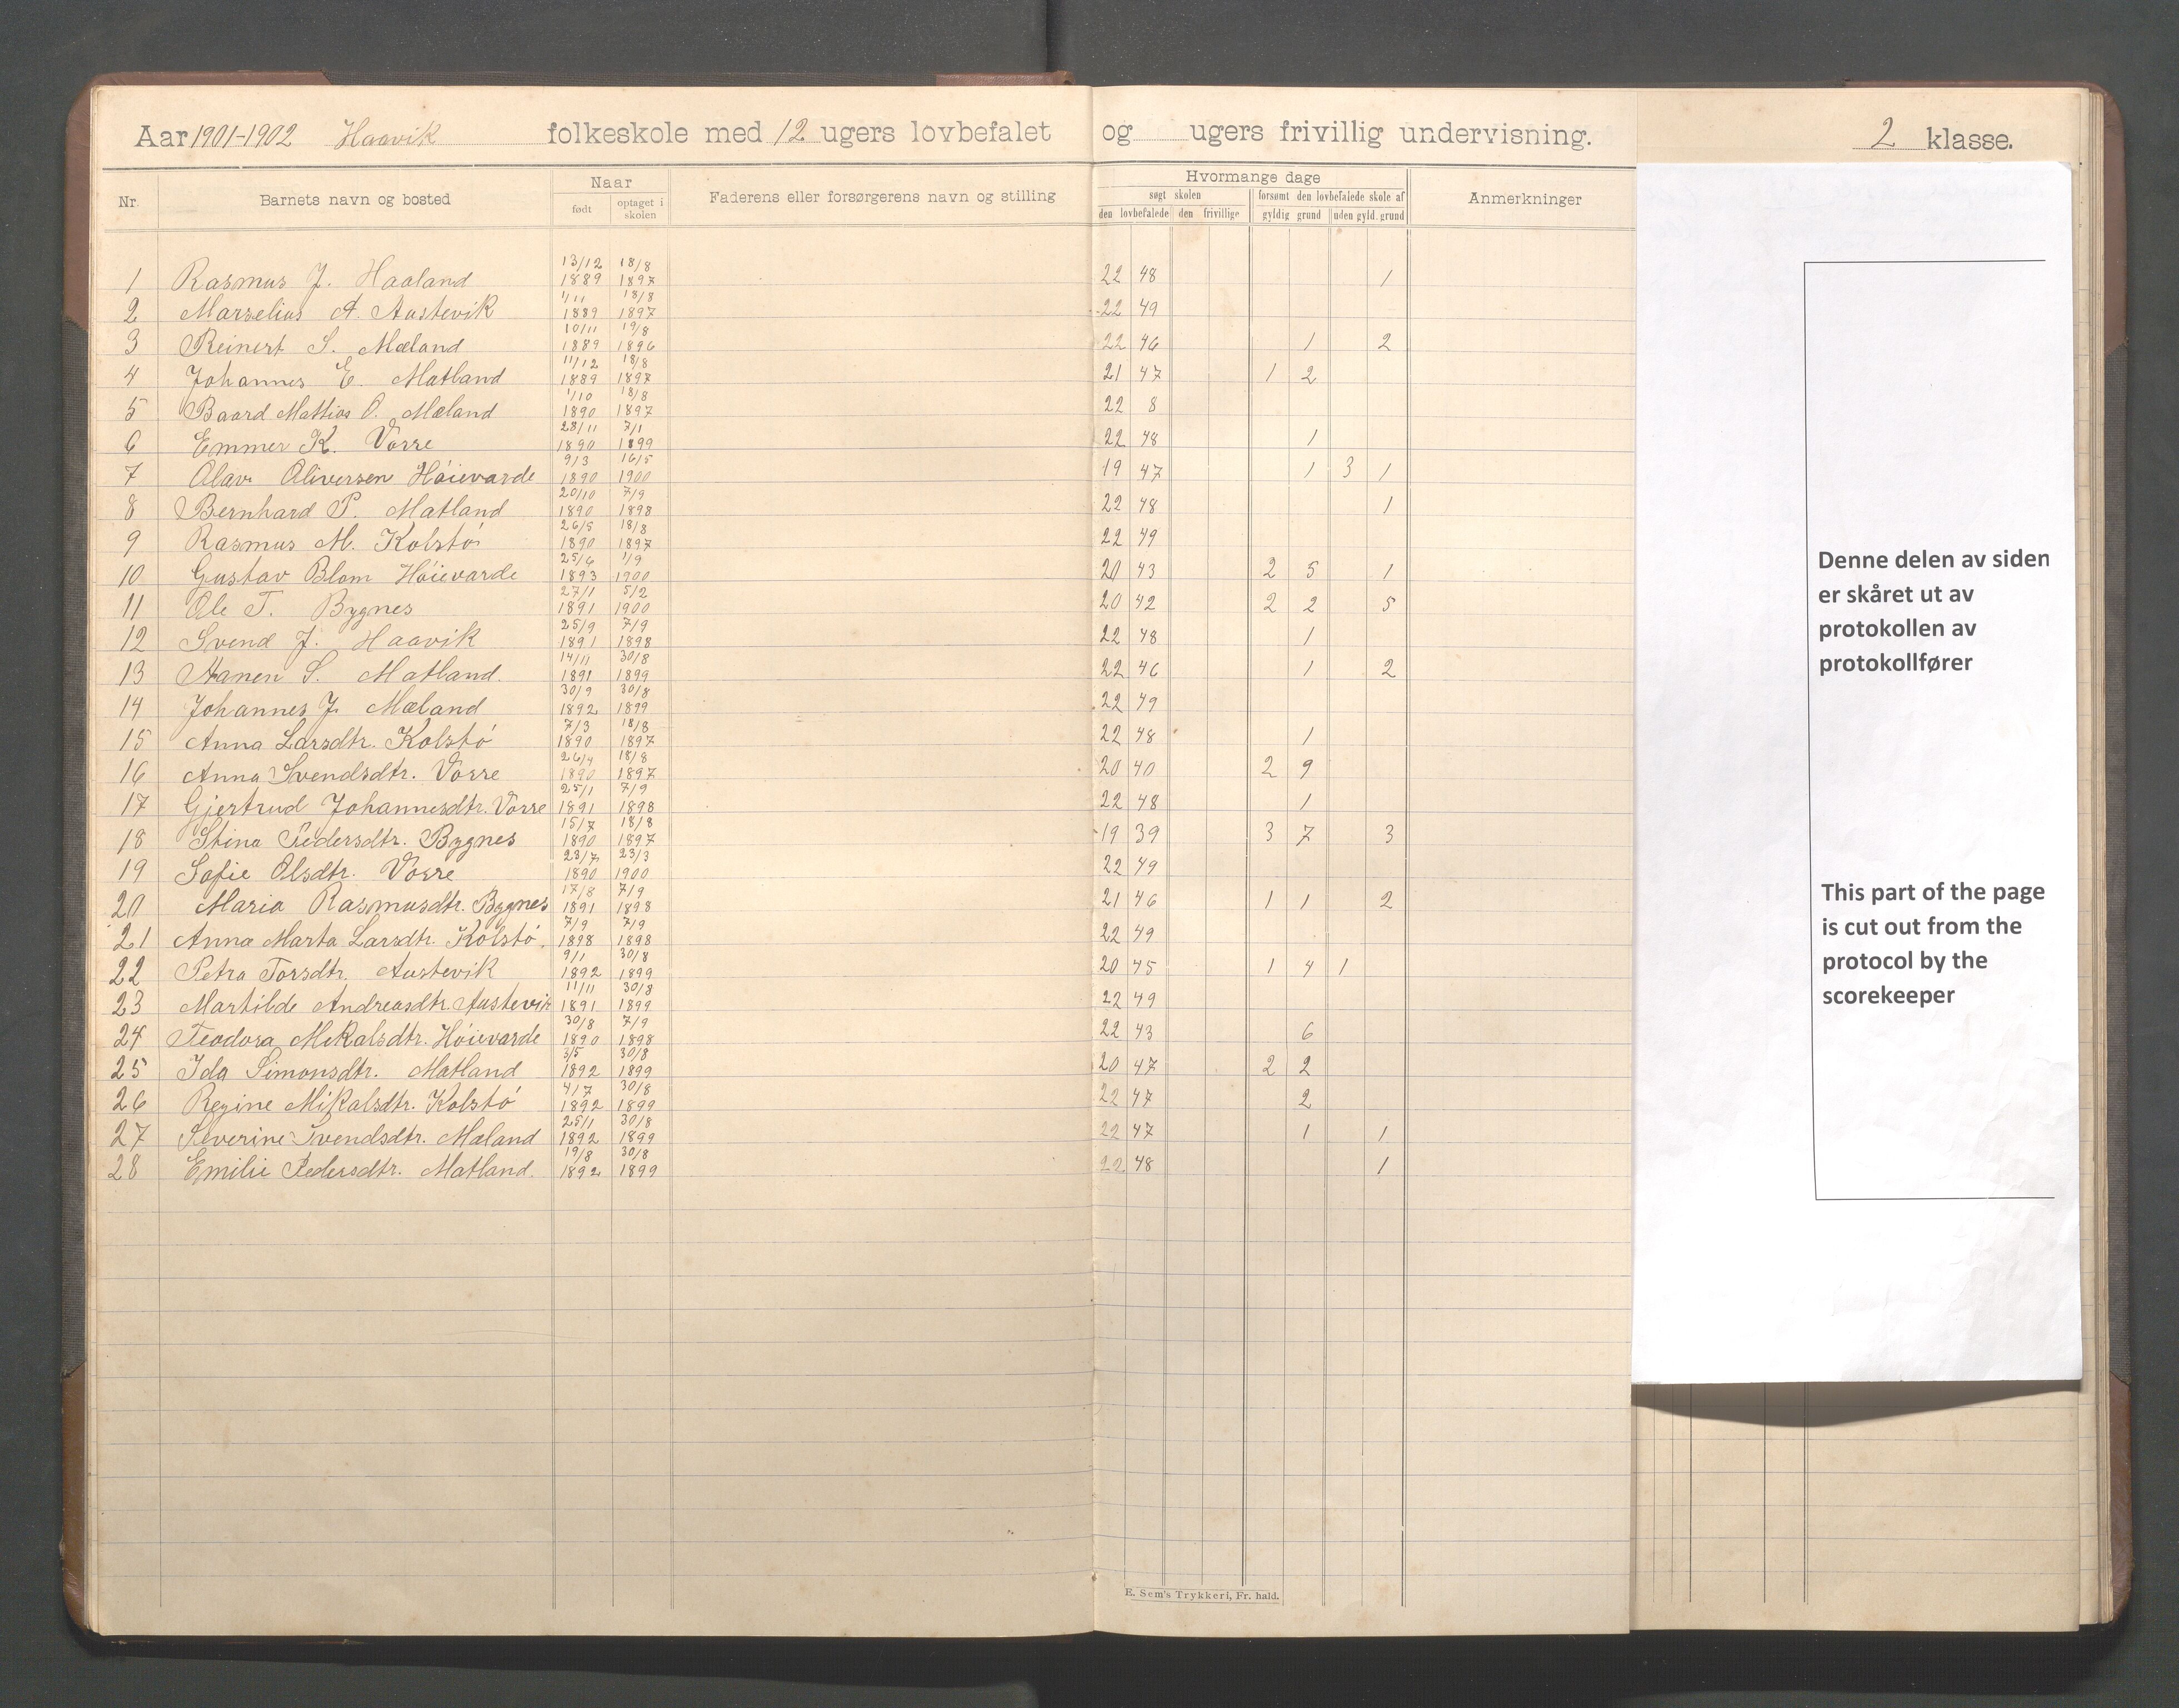 Aar 1901-1902 Haavik folkeskole med 12 ugers lovbefalet og ugers frivillig undervisning. 2 klasse.
Nr. Barnets navn og bosted Naar Faderens eller forsørgerens navn og stilling Hvormange dage Anmerkninger
født optaget i skolen søgt skolen forsømt den lovbefalede skole af
den lovbefalede den frivillige gyldig grund uden gyld. grund
13/12 18/8
1 Rasmus J. Haaland 1889 1897 22 48 1
1/11 18/8
2 Marselius A. Austevik 1889 1897 22 49
10/11 19/8
3 Reinert S. Mæland 1889 1896 22 46 1 2
11/12 18/8
4 Johannes E. Matland 1889 1897 21 47 1 2
1/10 18/8
5 Baard Mattias O. Mæland 1890 1897 22 8
28/11 7/1
6 Emmer K. Vorre 1890 1899 22 48 1
9/3 16/5
7 Olav Oliversen Höievarde 1890 1900 19 47 1 3 1
20/10 7/9
8 Bernhard P. Matland 1890 1898 22 48 1
26/5 18/8
9 Rasmus M. Kolstö 1890 1897 22 49
25/6 1/9
10 Gustav Blom Höievarde 1893 1900 20 43 2 5 1
27/1 5/2
11 Ole T. Bygnes 1891 1900 20 42 2 2 5
25/9 7/9
12 Svend J. Haavik 1891 1898 22 48 1
14/11 30/8
13 Hanen S. Matland. 1891 1899 22 46 1 2
30/9 30/8
14 Johannes J. Mæland 1892 1899 22 49
7/3 18/8
15 Anna Larsdtr. Kolstö 1890 1897 22 48 1
26/4 18/8
16 Anna Svendsdtr. Vorre 1890 1897 20 40 2 9
25/1 7/9
17 Gjertrud Johannesdtr. Vorre 1891 1898 22 48 1
15/7 18/8
18 Stina Pedersdtr. Bygnes 1890 1897 19 39 3 7 3
23/7 23/3
19 Sofie Olsdtr. Vorre 1890 1900 22 49
17/8 7/9
20 Maria Rasmusdtr. Bygnes 1891 1898 21 46 1 1 2
7/9 7/9
21 Anna Marta Larsdtr. Kolstö. 1898 1898 22 49
9/1 30/8
22 Petra Torsdtr. Austevik 1892 1899 20 45 1 4 1
11/11 30/8
23 Martilde Andreasdtr. Austevik 1891 1899 22 49
30/8 7/9
24 Teodora Mikalsdtr. Höievarde 1890 1898 22 43 6
3/5 30/8
25 Ida Simonsdtr. Matland 1892 1899 20 47 2 2
4/7 30/8
26 Regine Mikalsdtr. Kolstö 1892 1899 22 47 2
25/1 30/8
27 Severine Svendsdtr. Mæland 1892 1899 22 47 1 1
19/8 30/8
28 Emilie Pedersdtr. Matland. 1892 1899 22 48 1
E. Sem's Trykkeri, Fr. hald.
Denne delen av siden
er skåret ut av
protokollen av
protokollfører
This part of the page
is cut out from the
protocol by the
scorekeeper